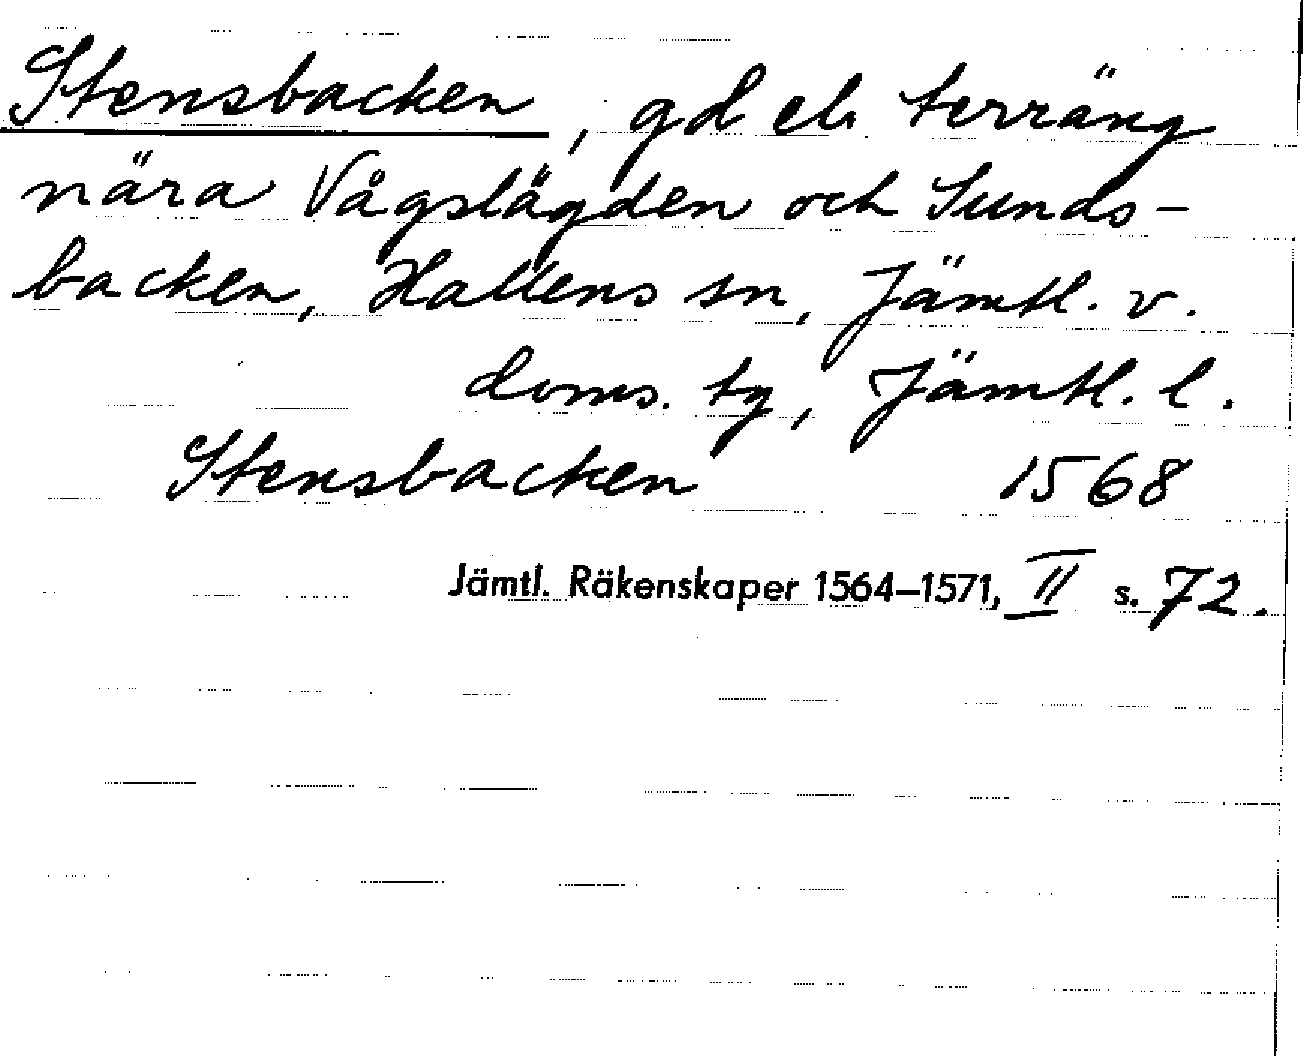 Stensbacken, gd el. terräng
nära Vågslägden och Sunds-
backen, Hallens sn, Jämtl. v.
doms. tg, Jämtl. l.
Stensbacken 1568
Jämtl. Räkenskaper 1564–1571, II s. 72.